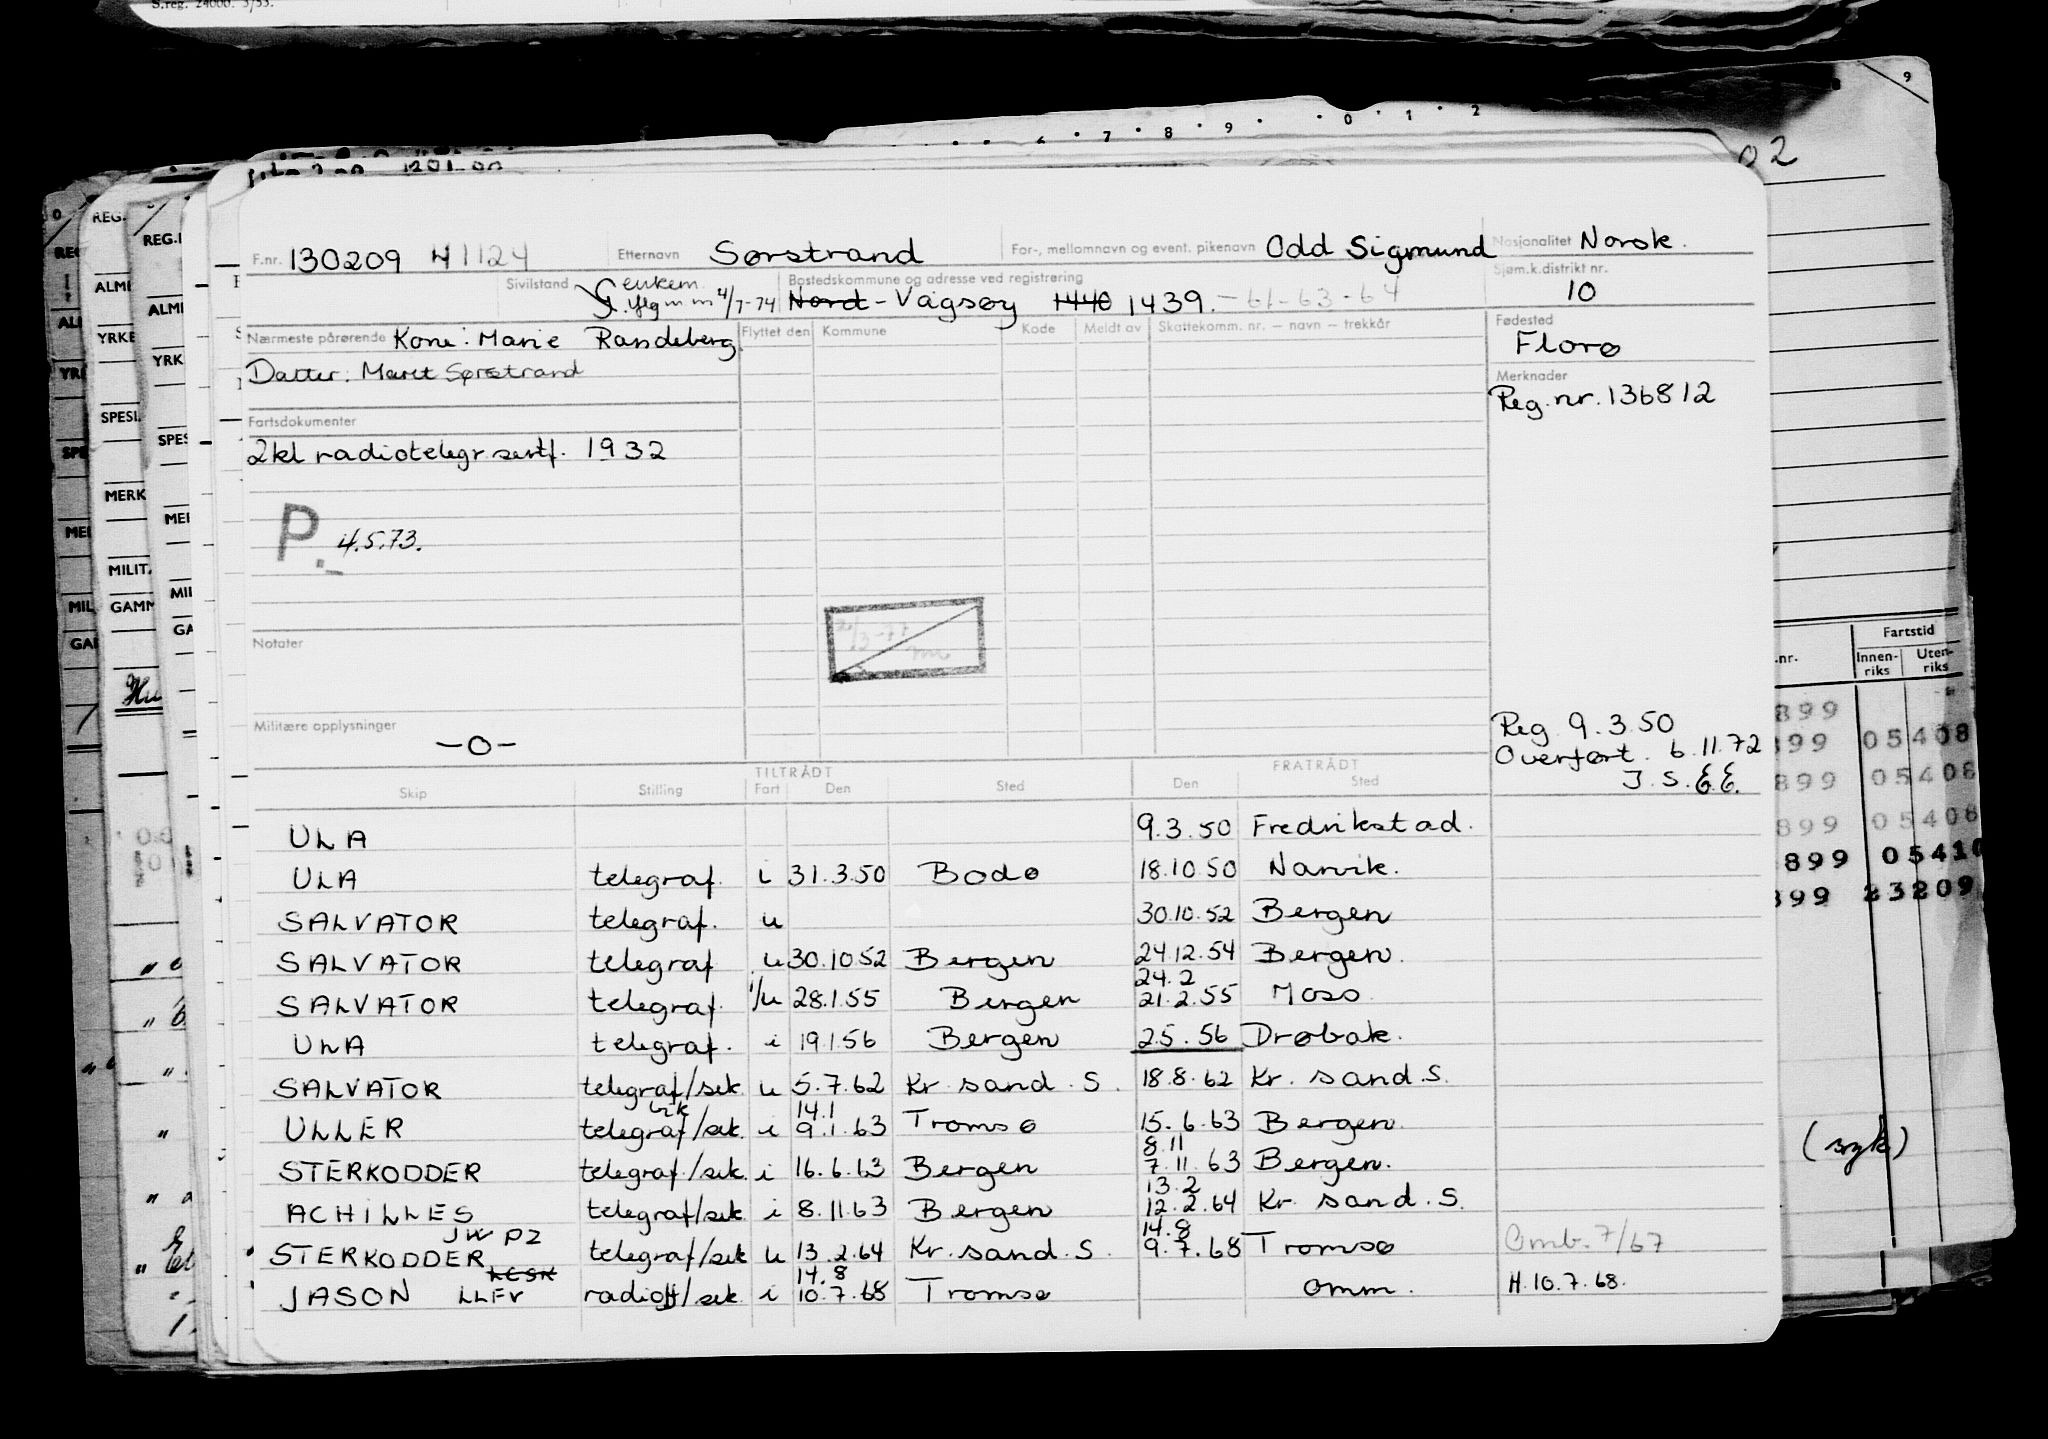 S.reg. 24000. 3/55.
9
6 . 7 . 8 . 9 . . 0 . 1 . 2
02
F.nr. 130209 41124 Etternavn Sørstrand For-, mellomnavn og event. pikenavn Odd Sigmund Nasjonalitet Norsk.
Sivilstand G enkem. Bostedskommune og adresse ved registrøring Sjøm.k.distrikt nr.
4/7-74 Nord - Vågsøy 1440 1439. -61-63-64 10
Nærmeste pårørende Kone: Marie Randeberg Flyttet den Kommune Kode Meldt av Skattekomm. nr. – navn – trekkår Fødested
Florø
Datter: Maret Sørstrand
Merknader
Reg.nr. 136812
Fartsdokumenter
2kl radiotelegr sertf. 1932
P.- 4.5.73.
Notater
Militære opplysninger
-0-
Reg 9.3.50
Overført. 6.11.72
J.S.E.E.
TILTRÅDT FRATRÅDT
Skip Stilling Fart Den Sted Den Sted
ULA 9.3.50 Fredrikstad.
ULA telegraf. i 31.3.50 Bodø 18.10.50 Narvik.
SALVATOR telegraf. u 30.10.52 Bergen
SALVATOR telegraf u 30.10.52 Bergen 24.12.54 Bergen.
24.2
SALVATOR telegraf. i/u 28.1.55 Bergen 21.2.55 Moss.
ULA telegraf. i 19.1.56 Bergen 2.5.56 Drøbak.
SALVATOR telegraf/sek u 5.7.62 Kr. sand. S. 18.8.62 Kr. sand.S.
14.1
ULLER telegraf/sek. i 9.1.63 Tromsø 15.6.63 Bergen.
8.11
STERKODDER telegraf/sek. i 16.6.63 Bergen 7.11.63 Bergen.
13.2
ACHILLES telegraf/sek i 8.11.63 Bergen 12.2.64 Kr. sand.S.
JWPZ 14.8
STERKODDER telegraf/sek u 13.2.64 Kr. sand.S. 9.7.68 Tromsø Omb. 7/67
14.8
JASON LLEV radioff/sek i 10.7.68 Tromsø omm. H.10.7.68.
REG.
ALM
YRKE
SPESI
MERK
MILIT
GAMM
REG.
ALM
YRK
SPES
MER
MIL
GA
.nr. Fartstid
Innen-riks Uten-riks
899
899 05408
899 05408
899 05408
899 05410
899 23209
(syk)